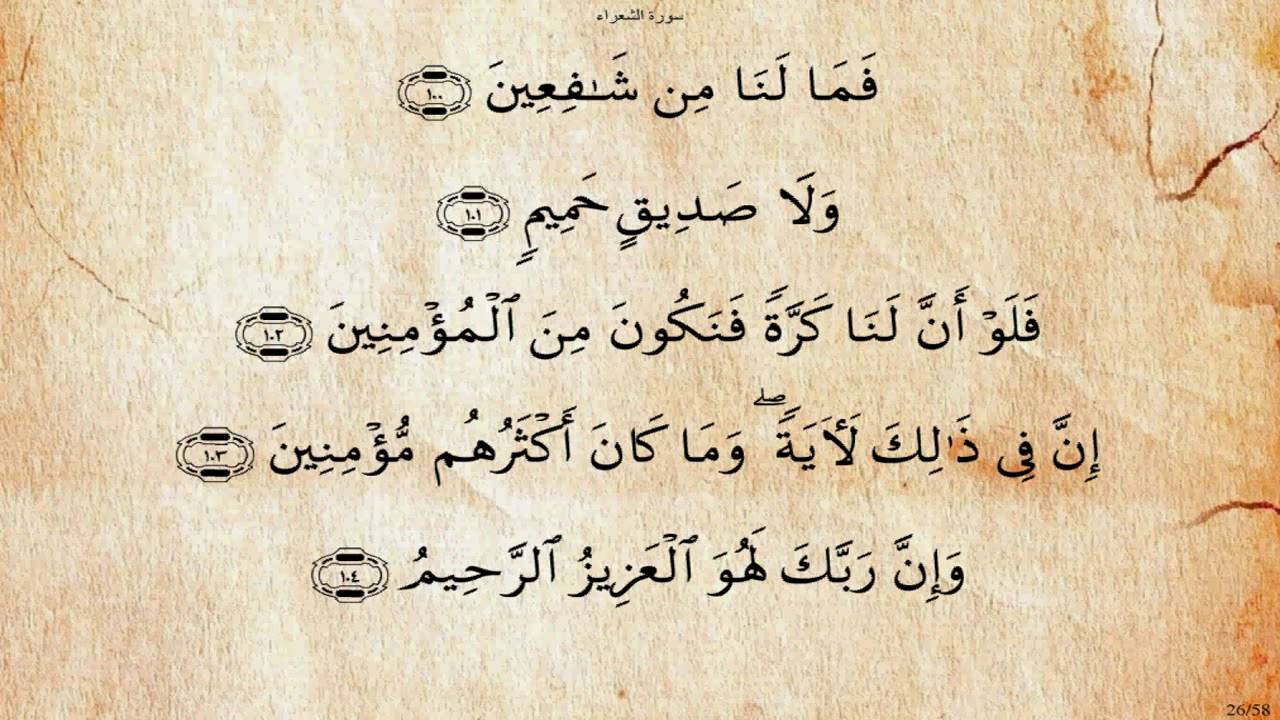 سورة الشعراء
فَمَا لَنَا مِن شَـٰفِعِينَ ١٠٠
وَلَا صَدِيقٍ حَمِيمٍ ١٠١
فَلَوۡ أَنَّ لَنَا كَرَّةٗ فَنَكُونَ مِنَ ٱلۡمُؤۡمِنِينَ ١٠٢
إِنَّ فِي ذَٰلِكَ لَأٓيَةٗۖ وَمَا كَانَ أَكۡثَرُهُم مُّؤۡمِنِينَ ١٠٣
وَإِنَّ رَبَّكَ لَهُوَ ٱلۡعَزِيزُ ٱلرَّحِيمُ ١٠٤
26/58